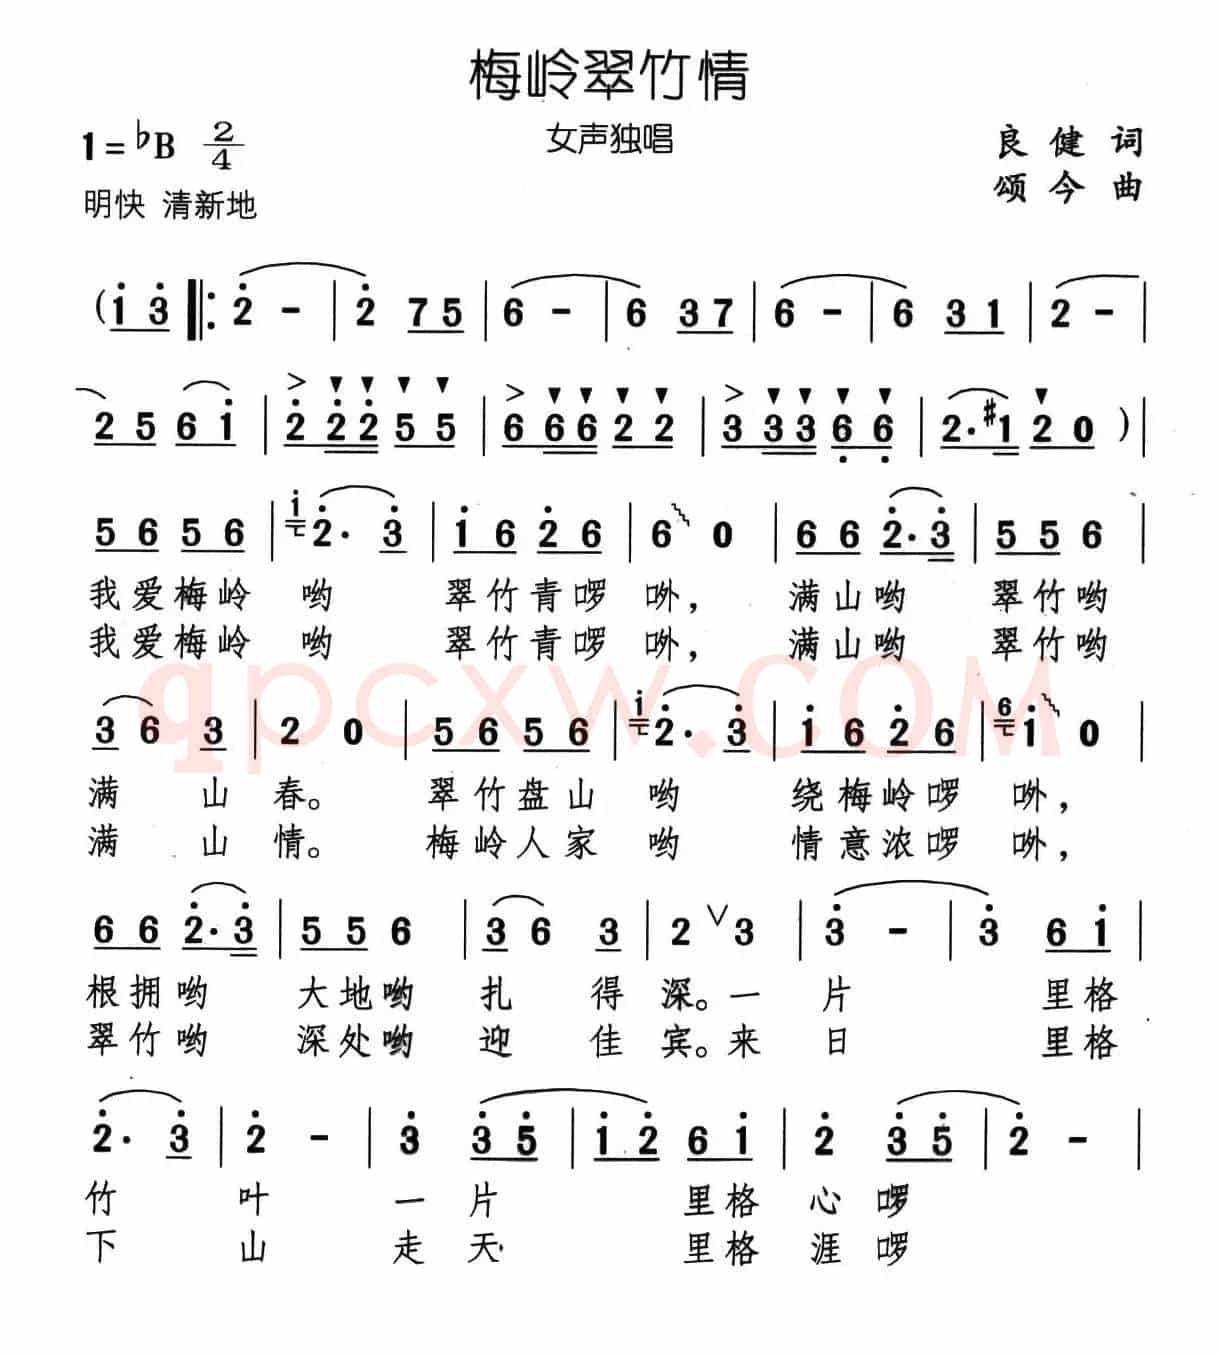 梅岭翠竹情
1=♭B 2/4 女声独唱 良健词
明快 清新地 颂今曲
(i̇ 3̇ ‖: 2̇ - | 2̇ 7 5 | 6 - | 6 3 7 | 6 - | 6 3 1 | 2 - |
2 5 6 i̇ | 2̇ 2̇ 2̇ 5 5 | 6 6 6 2 2 | 3 3 3 6̣ 6̣ | 2· #1 2 0 ) |
5 6 5 6 | i̇ 2̇· 3̇ | i̇ 6 2̇ 6 | 6 0 | 6 6 2̇· 3̇ | 5 5 6 |
我爱梅岭 哟 翠竹青啰 咻, 满山哟 翠竹哟
我爱梅岭 哟 翠竹青啰 咻, 满山哟 翠竹哟
qpcxw.COM
3 6 3 | 2 0 | 5 6 5 6 | i̇ 2̇· 3̇ | i̇ 6 2̇ 6 | 6 i̇ 0 |
满 山 春。 翠竹盘山 哟 绕梅岭啰 咻,
满 山 情。 梅岭人家 哟 情意浓啰 咻,
6 6 2̇· 3̇ | 5 5 6 | 3 6 3 | 2 ∨ 3 | 3̇ - | 3̇ 6 i̇ |
根拥哟 大地哟 扎 得 深。一 片 里格
翠竹哟 深处哟 迎 佳 宾。来 日 里格
2̇· 3̇ | 2̇ - | 3̇ 3̇ 5̇ | i̇ 2̇ 6 i̇ | 2̇ 3̇ 5̇ | 2̇ - |
竹 叶 一 片 里格 心 啰
下 山 走 天 里格 涯 啰